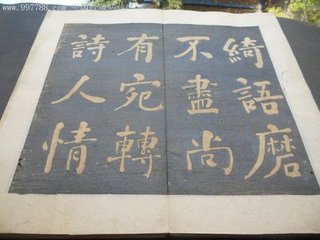 綺語磨
不盡尚
有宛轉
詩人情